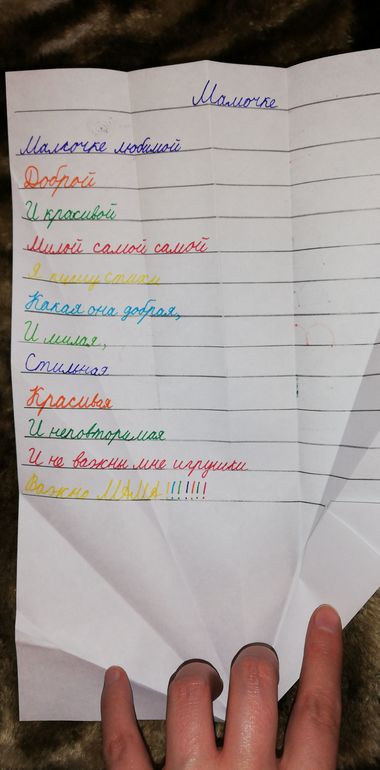 Мамочке
Мамочке любимой
Доброй
И красивой
Милой самой самой
Я пишу стихи
Какая она добрая,
И милая,
Стильная
Красивая
И неповторимая
И не важны мне игрушки
Важна МАМА!!!!!!!